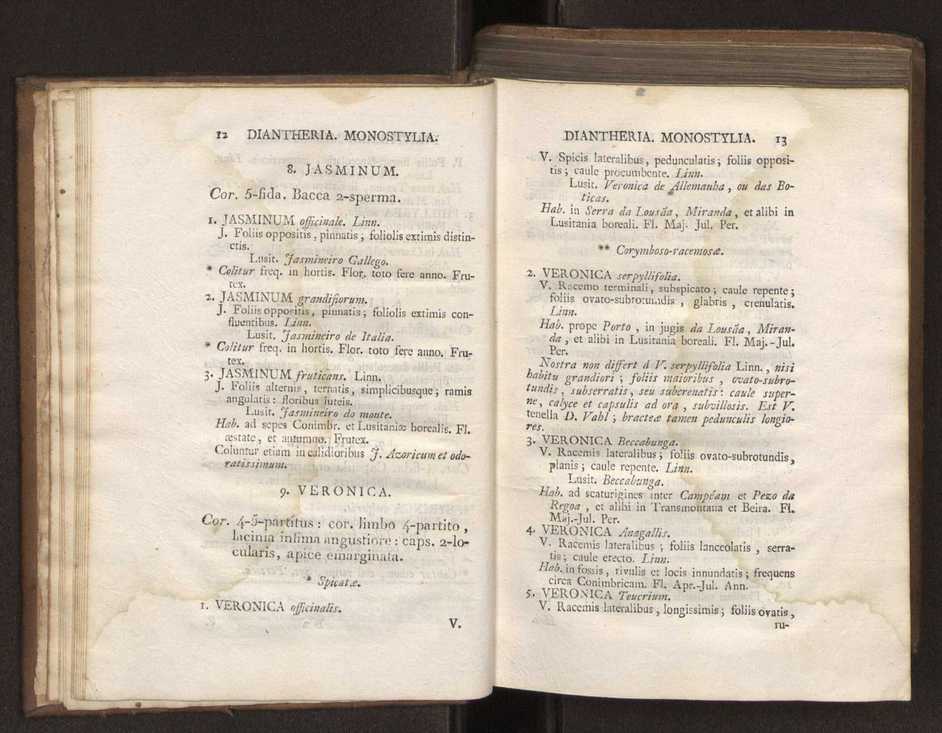 12 DIANTHERIA. MONOSTYLIA.
8. JASMINUM.
Cor. 5-fida. Bacca 2-sperma.
1. JASMINUM officinale. Linn.
J. Foliis oppositis, pinnatis; foliolis extimis distin-
ctis.
Lusit. Jasmineiro Gallego.
* Colitur freq. in hortis. Flor. toto fere anno. Fru-
tex.
2. JASMINUM grandiflorum.
J. Foliis oppositis, pinnatis; foliolis extimis con-
fluentibus. Linn.
Lusit. Jasmineiro de Italia.
* Colitur freq. in hortis. Flor. toto fere anno. Fru-
tex.
3. JASMINUM fruticans. Linn.
J. Foliis alternis, ternatis, simplicibusque; ramis
angulatis: floribus luteis.
Lusit. Jasmineiro do monte.
Hab. ad sepes Conimbr. et Lusitaniæ borealis. Fl.
æstate, et autumno. Frutex.
Coluntur etiam in calidioribus J. Azoricum et odo-
ratissimum.
9. VERONICA.
Cor. 4-5-partitus: cor. limbo 4-partito,
lacinia infima angustiore: caps. 2-lo-
cularis, apice emarginata.
* Spicatæ.
1. VERONICA officinalis.
V.
DIANTHERIA. MONOSTYLIA. 13
V. Spicis lateralibus, pedunculatis; foliis opposi-
tis; caule procumbente. Linn.
Lusit. Veronica de Allemanha, ou das Bo-
ticas.
Hab. in Serra da Lousãa, Miranda, et alibi in
Lusitania boreali. Fl. Maj. Jul. Per.
** Corymboso-racemosæ.
2. VERONICA serpyllifolia.
V. Racemo terminali, subspicato; caule repente;
foliis ovato-subrotundis, glabris, crenulatis.
Linn.
Hab. prope Porto, in jugis da Lousãa, Miran-
da, et alibi in Lusitania boreali. Fl. Maj.-Jul.
Per.
Nostra non differt á V. serpyllifolia Linn., nisi
habitu grandiori; foliis maioribus, ovato-subro-
tundis, subserratis, seu subcrenatis: caule super-
ne, calyce et capsulis ad ora, subvillosis. Est V.
tenella D. Vahl; bracteæ tamen pedunculis longio-
res.
3. VERONICA Beccabunga.
V. Racemis lateralibus; foliis ovato-subrotundis,
planis; caule repente. Linn.
Lusit. Beccabunga.
Hab. ad scaturigines inter Campéam et Pezo da
Regoa, et alibi in Transmontana et Beira. Fl.
Maj.-Jul. Per.
4. VERONICA Anagallis.
V. Racemis lateralibus; foliis lanceolatis, serra-
tis; caule erecto. Linn.
Hab. in fossis, rivulis et locis innundatis; frequens
circa Conimbricam. Fl. Apr.-Jul. Ann.
5. VERONICA Teucrium.
V. Racemis lateralibus, longissimis; foliis ovatis,
ru-